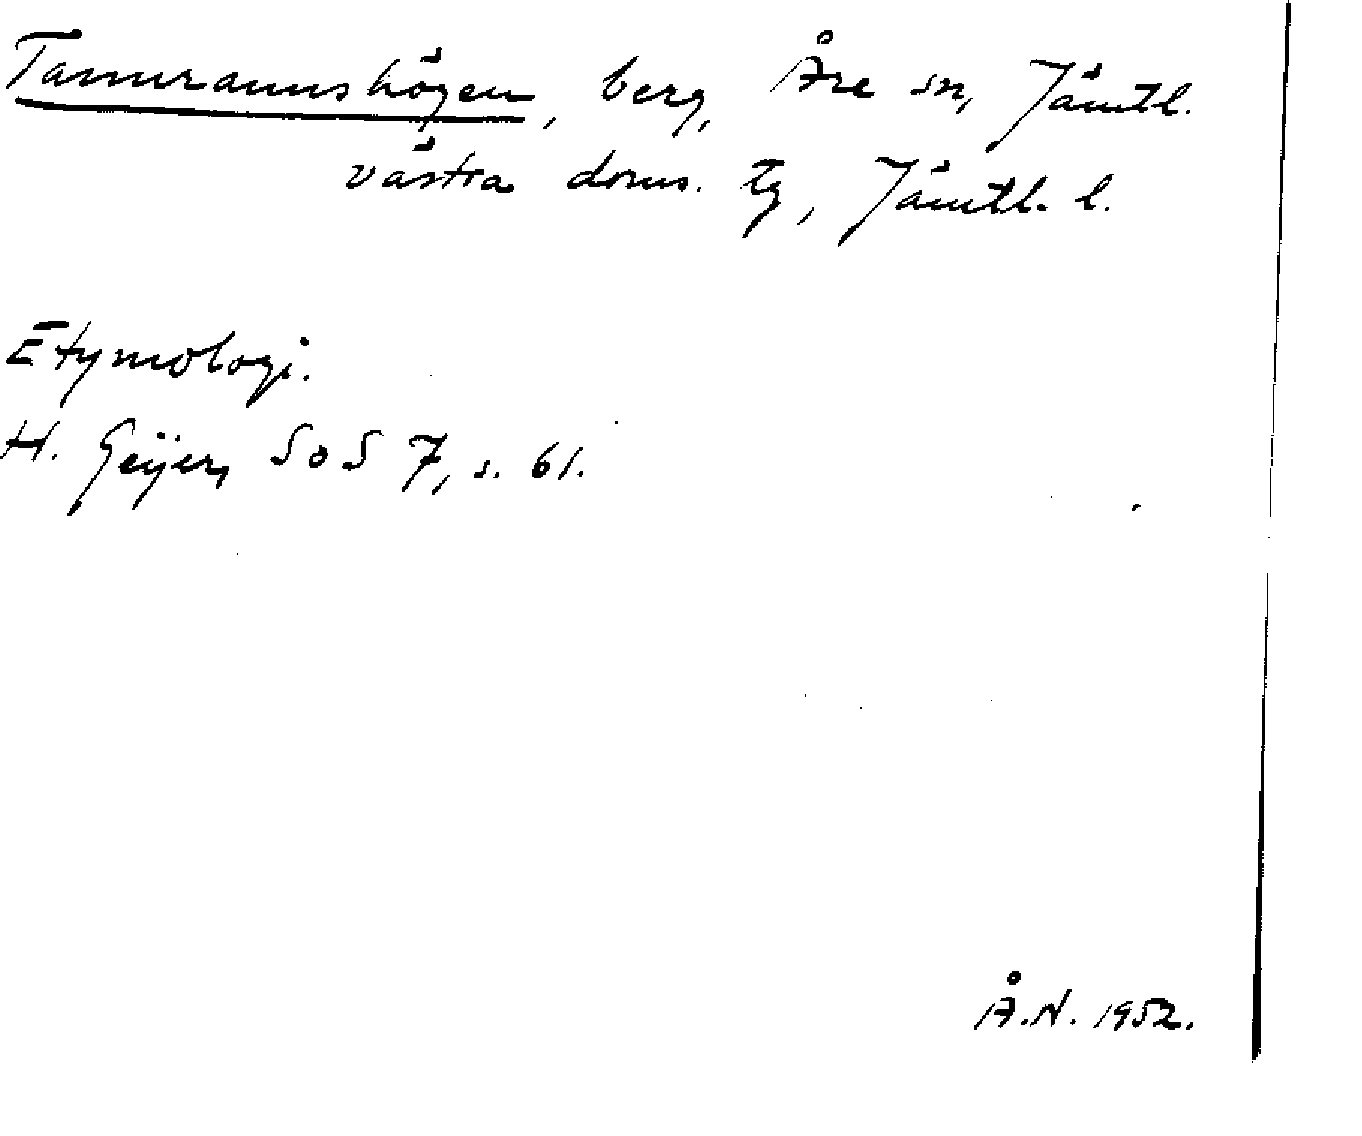 Tamuraunshögen, berg, Åre sn, Jämtl.
västra doms. tg, Jämtl. l.
Etymologi.
H. Geijer, SoS 7, s. 61.
Å.N. 1952.